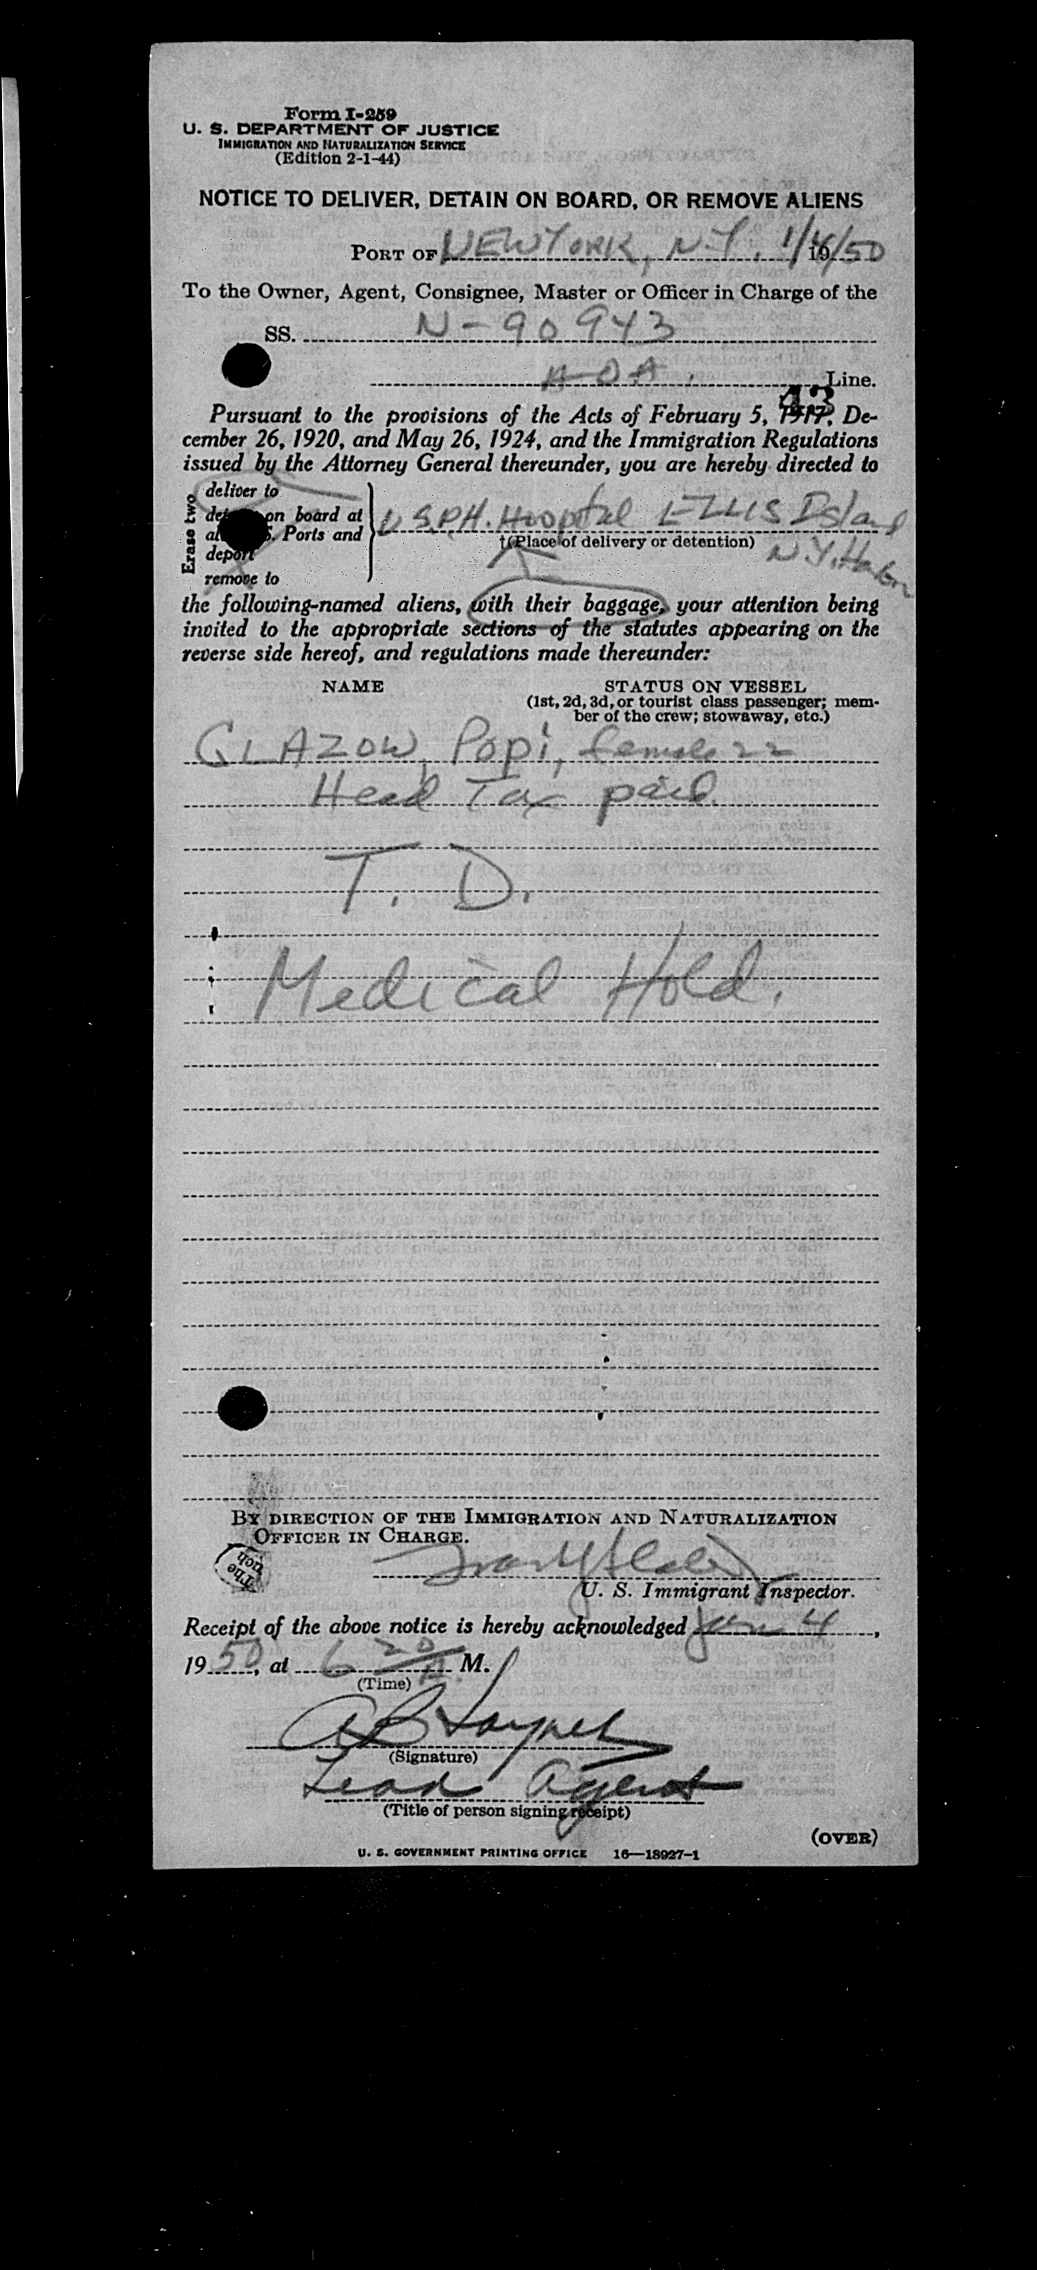 Form I-259
U. S. DEPARTMENT OF JUSTICE
IMMIGRATION AND NATURALIZATION SERVICE
(Edition 2-1-44)
NOTICE TO DELIVER, DETAIN ON BOARD, OR REMOVE ALIENS
PORT OF NEW YORK, N.Y. 1/4/50
To the Owner, Agent, Consignee, Master or Officer in Charge of the
SS. N-90943
AOA. Line.
43
Pursuant to the provisions of the Acts of February 5, 1917, De-
cember 26, 1920, and May 26, 1924, and the Immigration Regulations
issued by the Attorney General thereunder, you are hereby directed to
Erase two
deliver to
on board at
Ports and
deport
remove to
U S.P.H. Hospital ELLIS Island
†(Place of delivery or detention)
N.Y. Harbor
the following-named aliens, with their baggage, your attention being
invited to the appropriate sections of the statutes appearing on the
reverse side hereof, and regulations made thereunder:
NAME STATUS ON VESSEL
(1st, 2d, 3d, or tourist class passenger; mem-
ber of the crew; stowaway, etc.)
GLAZOW, Popi, female 22
Head Tax paid.
T. D.
Medical Hold.
BY DIRECTION OF THE IMMIGRATION AND NATURALIZATION
OFFICER IN CHARGE.
U. S. Immigrant Inspector.
Receipt of the above notice is hereby acknowledged Jan 4,
1950, at 6 20 A. M.
(Time)
(Signature)
Lead Agent
(Title of person signing receipt)
(OVER)
U. S. GOVERNMENT PRINTING OFFICE 16—18927-1